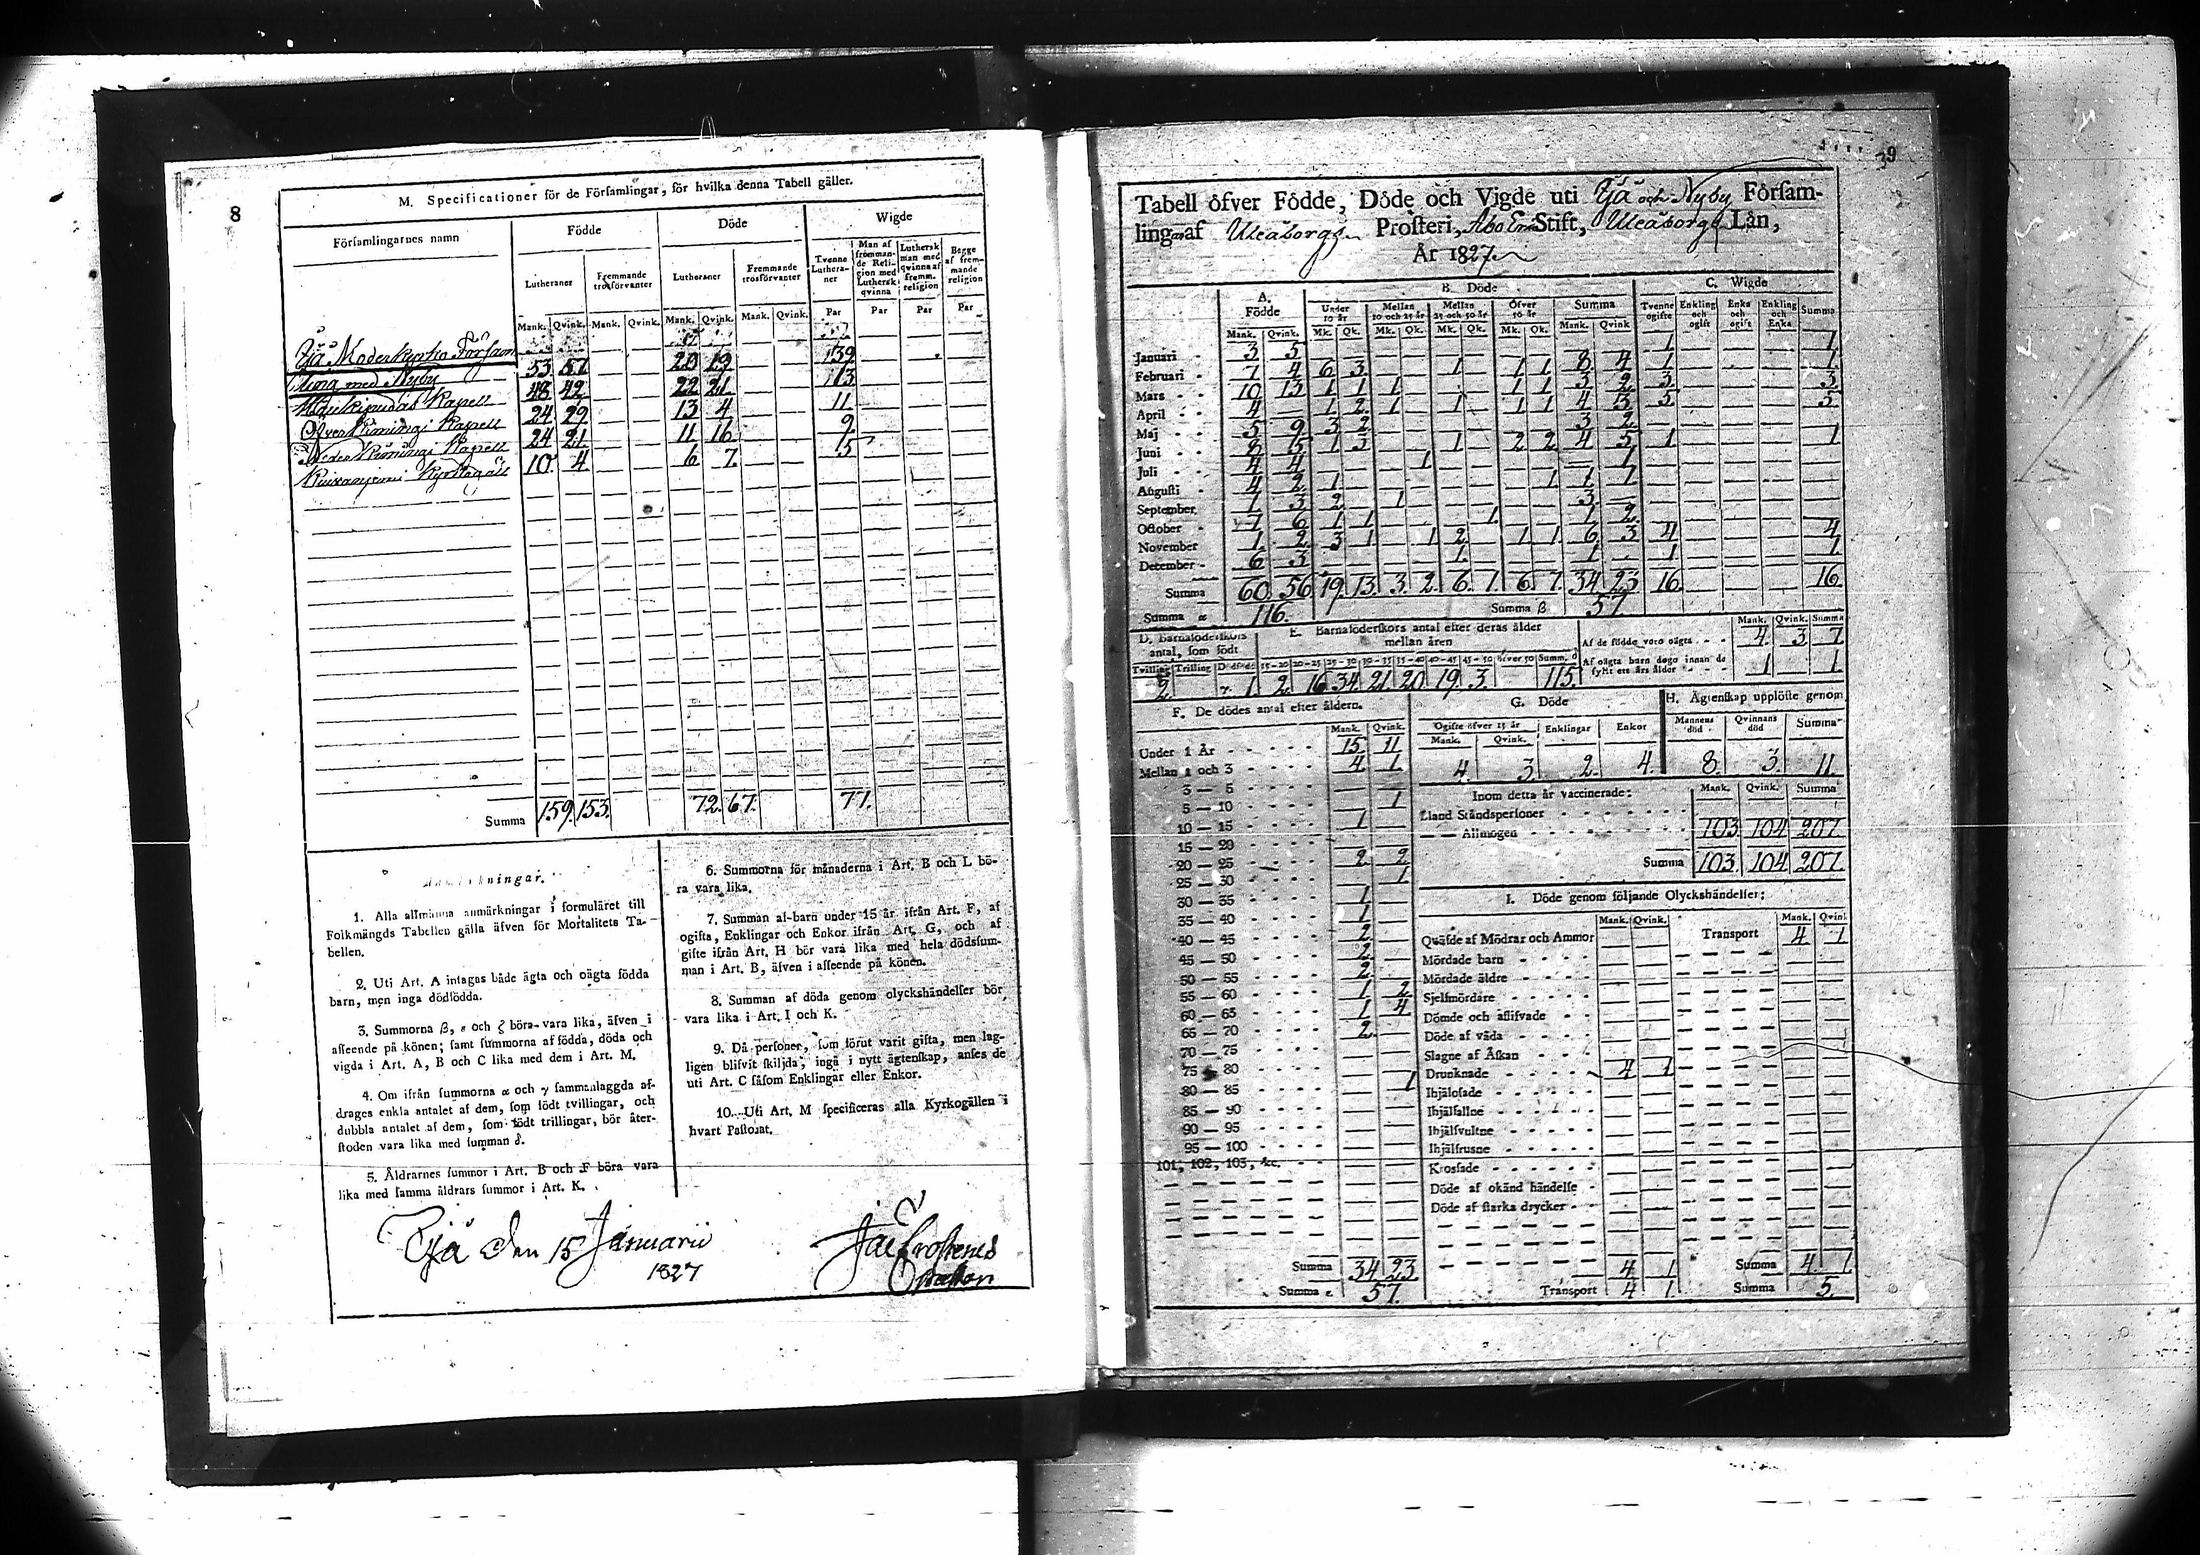 8
M. Specificationer för de Församlingar, för hvilka denna Tabell gäller.
Församlingarnes namn | Födde | Döde | Wigde
Lutheraner | Fremmande trosförvanter | Lutheraner | Fremmande trosförvanter | Tvenne Lutheraner | Man af frömmande Religion med Luthersk qvinna | Luthersk man med qvinna af fremm. religion | Begge af fremmande religion
Mank. Qvink. Mank. Qvink. Mank. Qvink. Mank. Qvink. Par Par Par Par
Ijå Moderkyrko Församling med Nyby 53 57 20 19 39
Haukipudas Kapell 48 42 22 21 13
Öfver Kiimingi Kapell 24 29 13 4 11
Neder Kiimingi Kapell 24 21 11 16 9
Kyrkogäll 10 4 6 7 5
Summa 159. 153. 72. 67. 77.
1. Alla allmänna anmärkningar i formuläret till
Folkmängds Tabellen gälla äfven för Mortalitets Ta-
bellen.
2. Uti Art. A intagas både ägta och oägta födda
barn, men inga dödfödda.
3. Summorna β, ε och ζ böra vara lika, äfven i
affeende på könen; samt summorna af födda, döda och
vigda i Art. A, B och C lika med dem i Art. M.
4. Om ifrån summorna α och γ sammanlaggda af-
drages enkla antalet af dem, som födt tvillingar, och
dubbla antalet af dem, som födt trillingar, bör åter-
stoden vara lika med summan δ.
5. Åldrarnes summor i Art. B och F böra vara
lika med samma åldrars summor i Art. K.
6. Summorna för månaderna i Art. B och L bö-
ra vara lika.
7. Summan af barn under 15 år ifrån Art. F, af
ogifta, Enklingar och Enkor ifrån Art. G, och af
gifte ifrån Art. H bör vara lika med hela dödssum-
man i Art. B, äfven i affeende på könen.
8. Summan af döda genom olyckshändelser bör
vara lika i Art. I och K.
9. Då personer, som förut varit gifta, men lag-
ligen blifvit skiljda, ingå i nytt ägtenskap, anses de
uti Art. C såsom Enklingar eller Enkor.
10. Uti Art. M specificeras alla Kyrkogällen i
hvart Pastorat.
Ijå den 15 Januarii
1827
39
Tabell öfver Födde, Döde och Vigde uti Ijå och Nyby Försam-
lingar af Uleåborgs Prosteri, Åbo Stift, Uleåborgs Län,
År 1827.
A. Födde | B. Döde | C. Wigde
Under 10 år | Mellan 10 och 25 år | Mellan 25 och 50 år | Öfver 50 år | Summa | Tvenne ogifte | Enkling och ogift | Enka och ogift | Enkling och Enka | Summa
Mank. Qvink. Mk. Qk. Mk. Qk. Mk. Qk. Mk. Qk. Mank. Qvink
Januari 3 5 1 1
Februari 7 4 6 3 1 1 1 8 4 1 1
Mars 10 13 1 1 1 1 1 3 2 3 3
April 4 1 2 1 1 1 1 4 3 5 5
Maj 5 9 3 2 3 2
Juni 8 15 1 3 1 2 2 4 5 1 1
Juli 4 4 1 1
Augusti 4 2 1 1 1 1
September 1 3 2 1 3
October 7 6 1 1 1 1 2
November 1 2 3 1 1 2 1 1 6 3 4 4
December 6 3 1 1 1 1
Summa 60. 56 19. 13. 3. 2. 6. 1. 6. 7. 34 23 16. 16.
Summa α 116. Summa β 57
D. Barnaföderskors antal, som födt
Tvilling Trilling Dödfödde
2. 1.
E. Barnaföderskors antal efter deras ålder mellan åren
15-20 20-25 25-30 30-35 35-40 40-45 45-50 öfver 50 Summ. δ
2. 16 34. 21. 20. 19. 3. 115.
Mank. Qvink. Summa
Af de födde voro oägta 4. 3 7
Af oägta barn dogo innan de fyllt ett års ålder 1 1.
F. De dödes antal efter åldern.
Mank. Qvink.
Under 1 År 15 11
Mellan 1 och 3 4 1
3 — 5
5 — 10 1
10 — 15 1
15 — 20
20 — 25 2 2
25 — 30 1
30 — 35 1
35 — 40 1
40 — 45 2
45 — 50 2
50 — 55 2
55 — 60 1 2
60 — 65 1 4
65 — 70 2
70 — 75
75 — 80
80 — 85 1
85 — 90
90 — 95
95 — 100
101, 102, 103, &c.
Summa 34 23
Summa ε 57.
G. Döde
Ogifte öfver 15 år Enklingar Enkor
Mank. Qvink.
4. 3. 2. 4.
H. Ägtenskap upplöste genom
Mannens död Qvinnans död Summa
8. 3. 11.
Inom detta år vaccinerade: Mank. Qvink. Summa
Bland Ståndspersoner
— — Allmogen 103 104 207.
Summa 103. 104 207.
I. Döde genom följande Olyckshändelser:
Mank. Qvink. Mank. Qvink
Quäfde af Mödrar och Ammor Transport 4 1
Mördade barn
Mördade äldre
Sjelfmördare
Dömde och aflifvade
Döde af våda
Slagne af Åskan
Drunknade 4 1
Ihjälofade
Ihjälfallne
Ihjälsvultne
Ihjälfrusne
Krossade
Döde af okänd händelse
Döde af starka drycker
4 1 Summa 4. 1.
Transport 4 1. Summa 5.